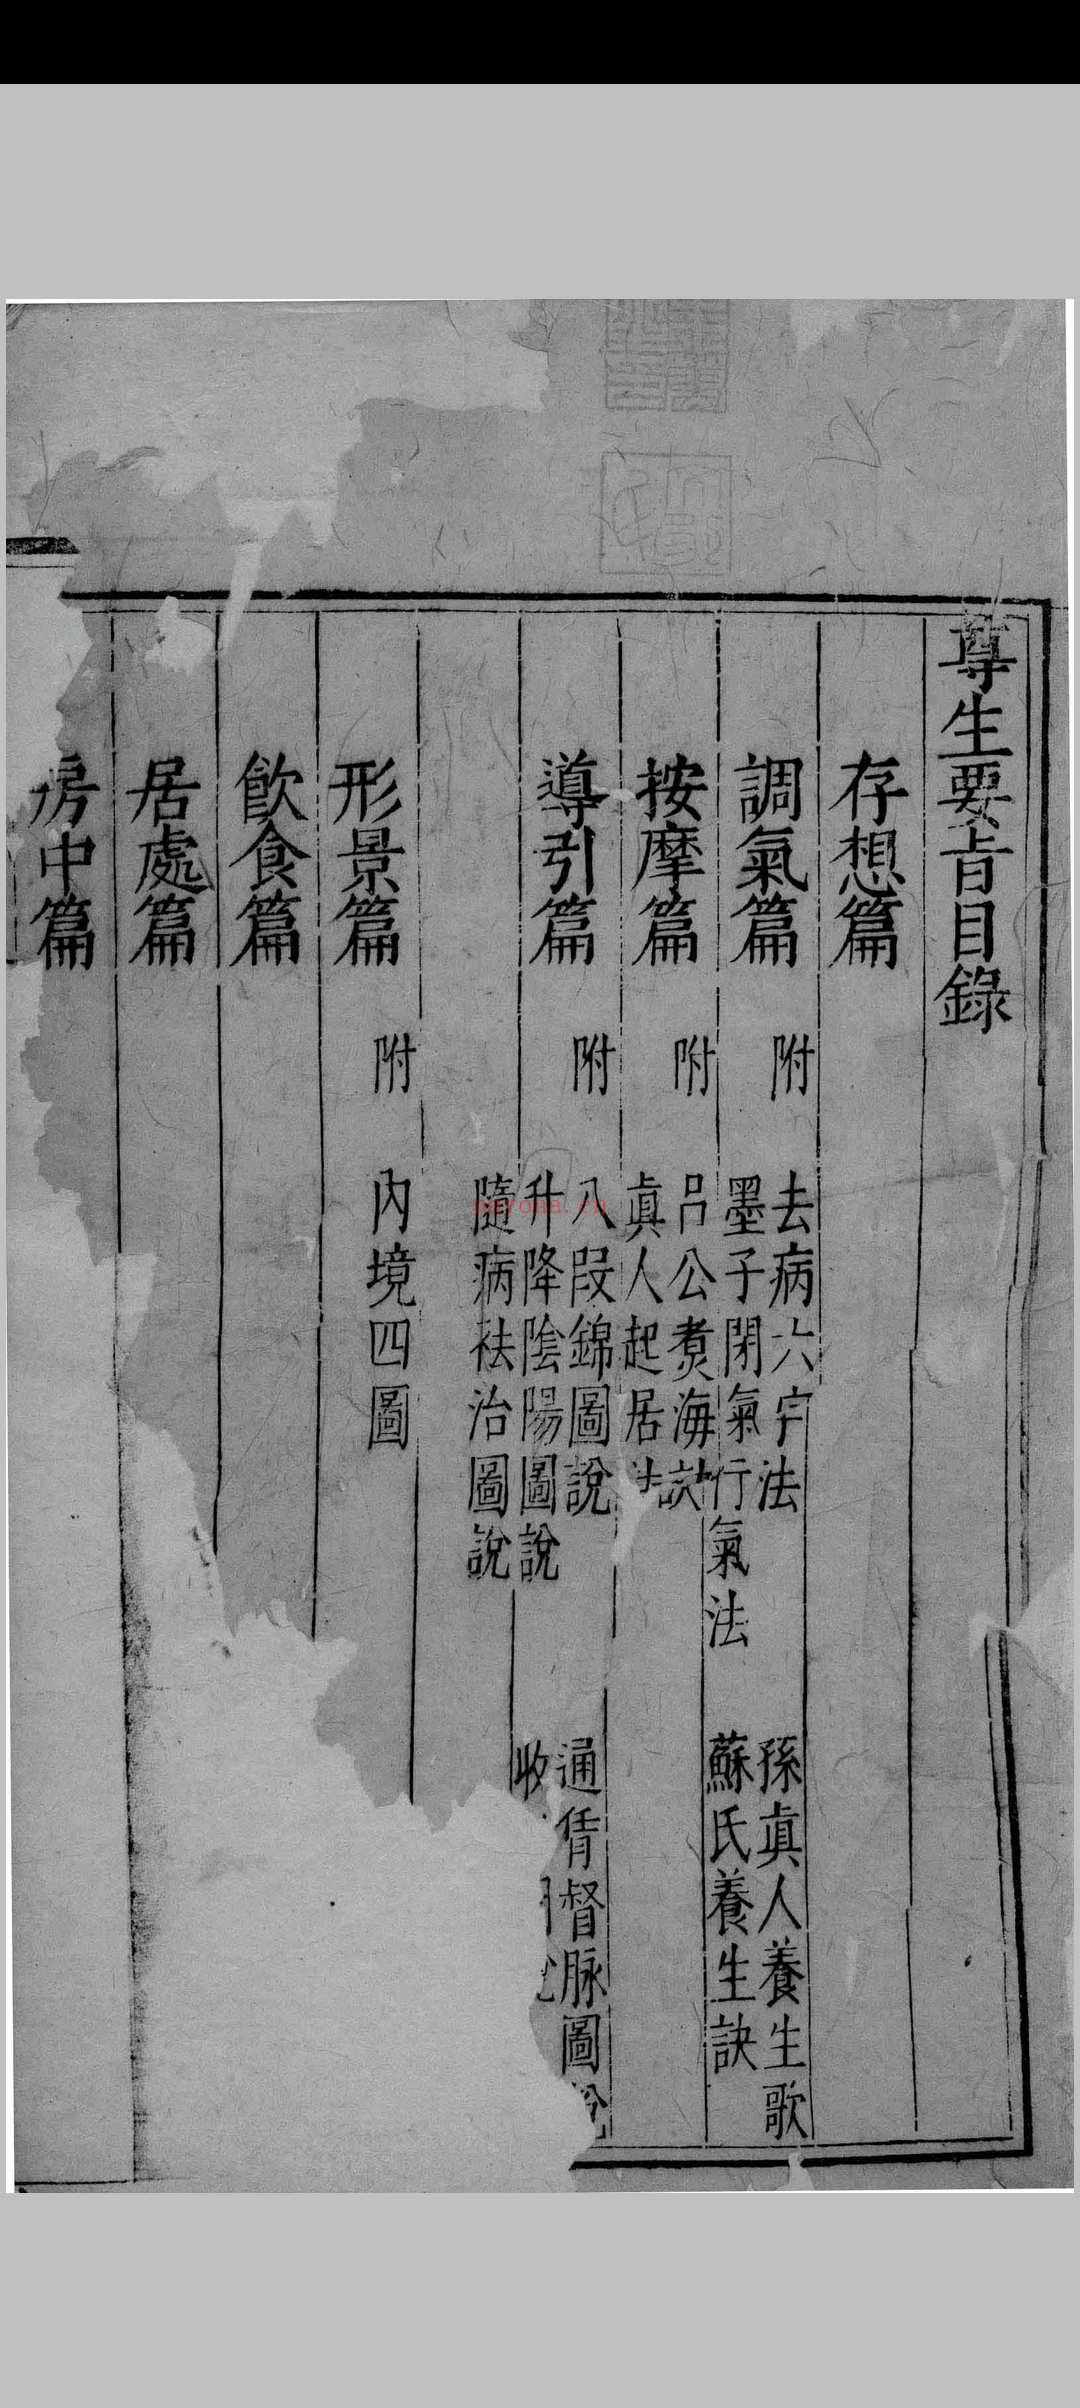 尊生要旨目錄
存想篇
調氣篇 附 去病六字法 孫眞人養生歌
墨子閉氣行氣法 蘇氏養生訣
按摩篇 附 吕公煑海訣
眞人起居法
導引篇 附 八段錦圖說 通偝督脉圖說
升降陰陽圖說 收
隨病祛治圖說
形景篇 附 內境四圖
飲食篇
居處篇
房中篇
nayona.cn